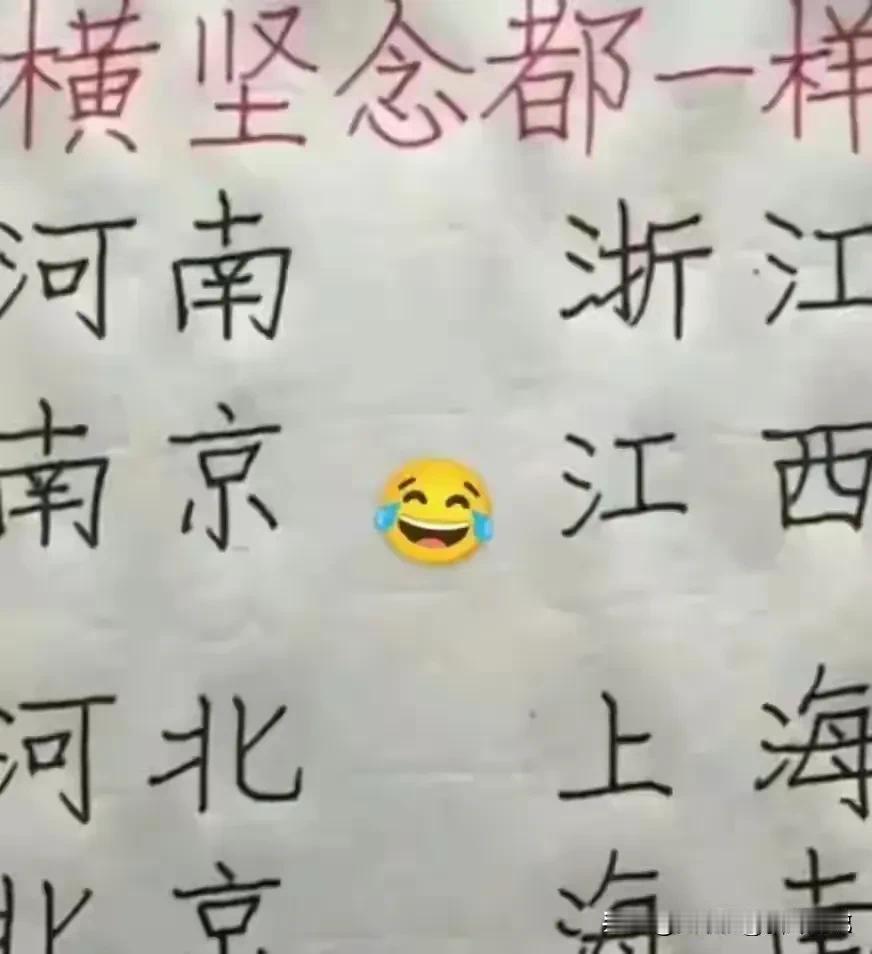 横坚念都一样
河南 浙江
南京 江西
河北 上海
北京 海南